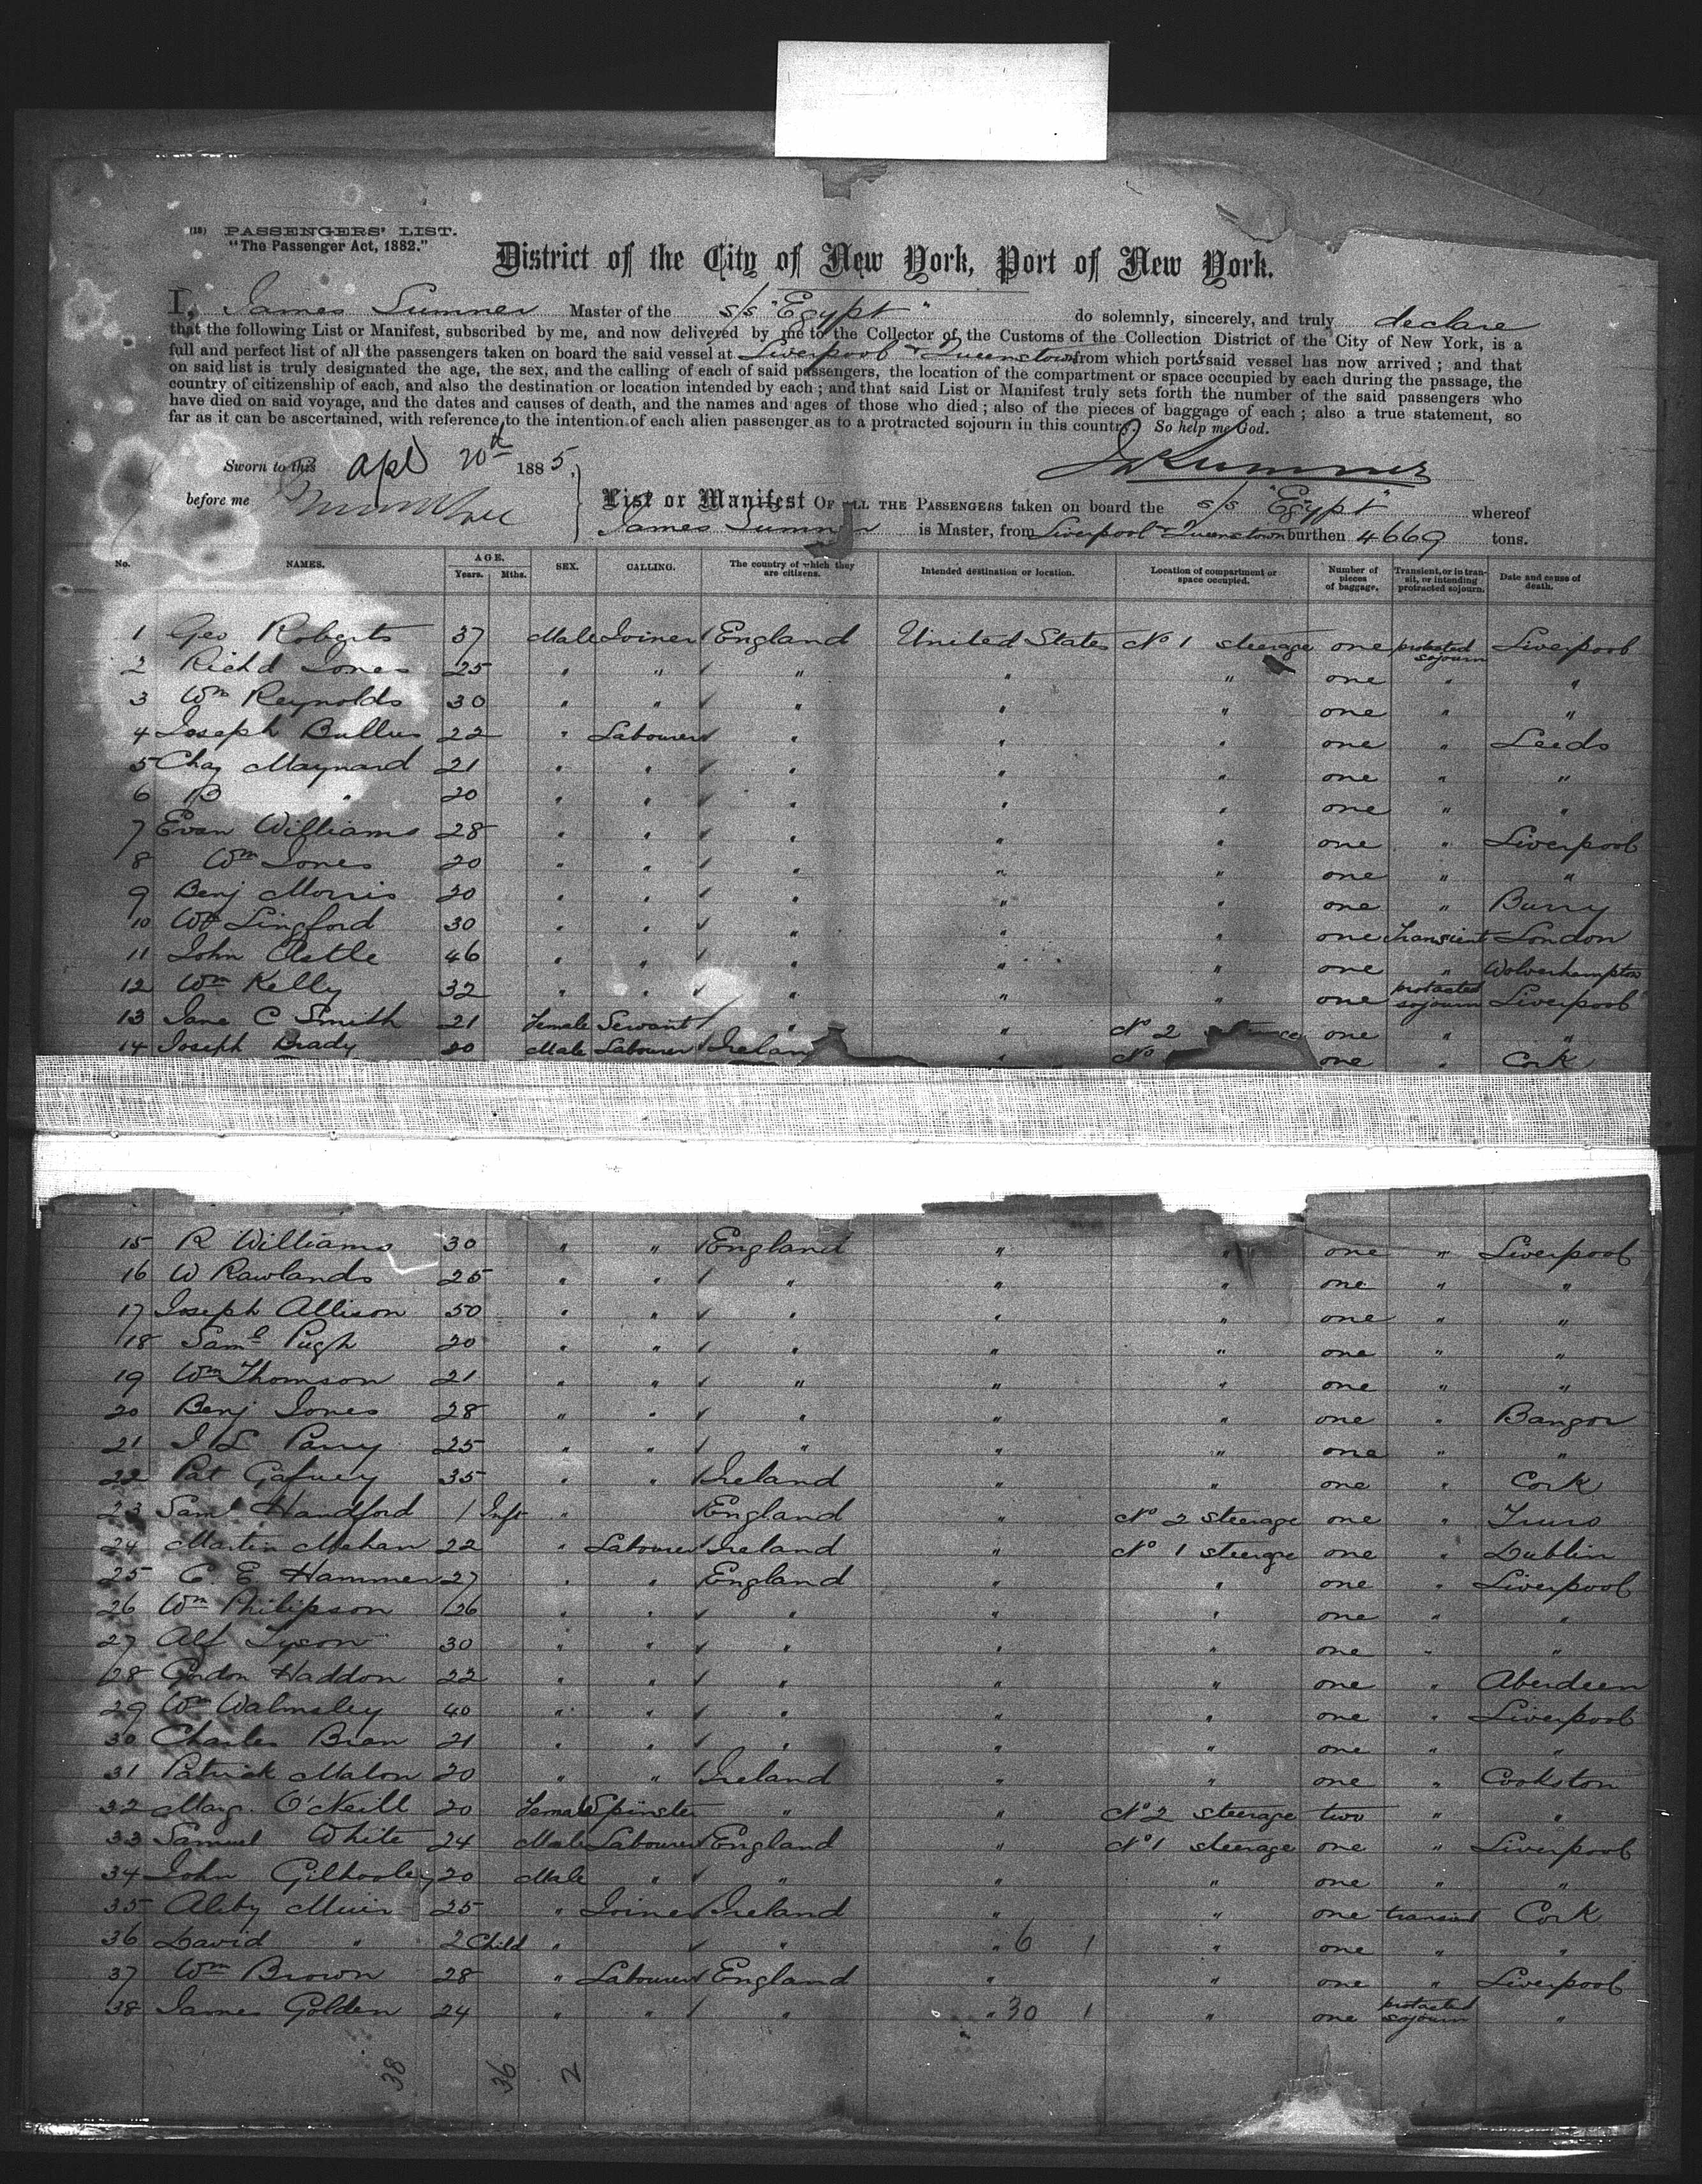 (18) PASSENGERS' LIST.
"The Passenger Act, 1882."
District of the City of New York, Port of New York.
I, James Sumner Master of the s/s "Egypt" do solemnly, sincerely, and truly declare
that the following List or Manifest, subscribed by me, and now delivered by me to the Collector of the Customs of the Collection District of the City of New York, is a
full and perfect list of all the passengers taken on board the said vessel at Liverpool & Queenstown from which ports said vessel has now arrived; and that
on said list is truly designated the age, the sex, and the calling of each of said passengers, the location of the compartment or space occupied by each during the passage, the
country of citizenship of each, and also the destination or location intended by each; and that said List or Manifest truly sets forth the number of the said passengers who
have died on said voyage, and the dates and causes of death, and the names and ages of those who died; also of the pieces of baggage of each; also a true statement, so
far as it can be ascertained, with reference to the intention of each alien passenger as to a protracted sojourn in this country. So help me God.
Sworn to this Apl 20th 1885,
before me
List or Manifest OF ALL THE PASSENGERS taken on board the s/s "Egypt" whereof
James Sumner is Master, from Liverpool & Queenstown burthen 4669 tons.
No. NAMES. AGE. Years. Mths. SEX. CALLING. The country of which they are citizens. Intended destination or location. Location of compartment or space occupied. Number of pieces of baggage. Transient, or in transit, or intending protracted sojourn. Date and cause of death.
1 Geo Roberts 37 Male Joiner England United States No 1 steerage one protracted sojourn Liverpool
2 Richd Jones 25 " " " " " one " "
3 Wm Reynolds 30 " " " " " one " "
4 Joseph Bullus 22 " Labourer " " " one " Leeds
5 Chas Maynard 21 " " " " " one " "
6 B " 20 " " " " " one " "
7 Evan Williams 28 " " " " " one " Liverpool
8 Wm Jones 20 " " " " " one " "
9 Benj Morris 20 " " " " " one " Burry
10 Wm Lingford 30 " " " " " one Transient London
11 John Astle 46 " " " " " one " Wolverhampton
12 Wm Kelly 32 " " " " " one protracted sojourn Liverpool
13 Jane C Smith 21 Female Servant " " No 2 one " "
14 Joseph Brady 20 Male Labourer Ireland " No one " Cork
15 R Williams 30 " " England " " one " Liverpool
16 W Rawlands 25 " " " " " one " "
17 Joseph Allison 50 " " " " " one " "
18 Saml Pugh 20 " " " " " one " "
19 Wm Thomson 21 " " " " " one " "
20 Benj Jones 28 " " " " " one " Bangor
21 J L Parry 25 " " " " " one " "
22 Pat Gafney 35 " " Ireland " " one " Cork
23 Saml Handford 1 Inft " England " No 2 steerage one " Truro
24 Martin Mehan 22 " Labourer Ireland " No 1 steerage one " Dublin
25 C. E Hammer 27 " " England " " one " Liverpool
26 Wm Philipson 26 " " " " " one " "
27 Alf Tyson 30 " " " " " one " "
28 Gordon Haddon 22 " " " " " one " Aberdeen
29 Wm Walmsley 40 " " " " " one " Liverpool
30 Charles Bran 21 " " " " " one " "
31 Patrick Malon 20 " " Ireland " " one " Cookston
32 Marg. O'Neill 20 Female Spinster " " No 2 steerage two " "
33 Samuel White 24 Male Labourer England " No 1 steerage one " Liverpool
34 John Gilhooley 20 Male " " " " one " "
35 Muir 25 " Joiner Ireland " " one transient Cork
36 David " 2 Child " " " 6 1 " one " "
37 Wm Brown 28 " Labourer England " " one " Liverpool
38 James Golden 24 " " " " 30 1 " one protracted sojourn "
38 36 2